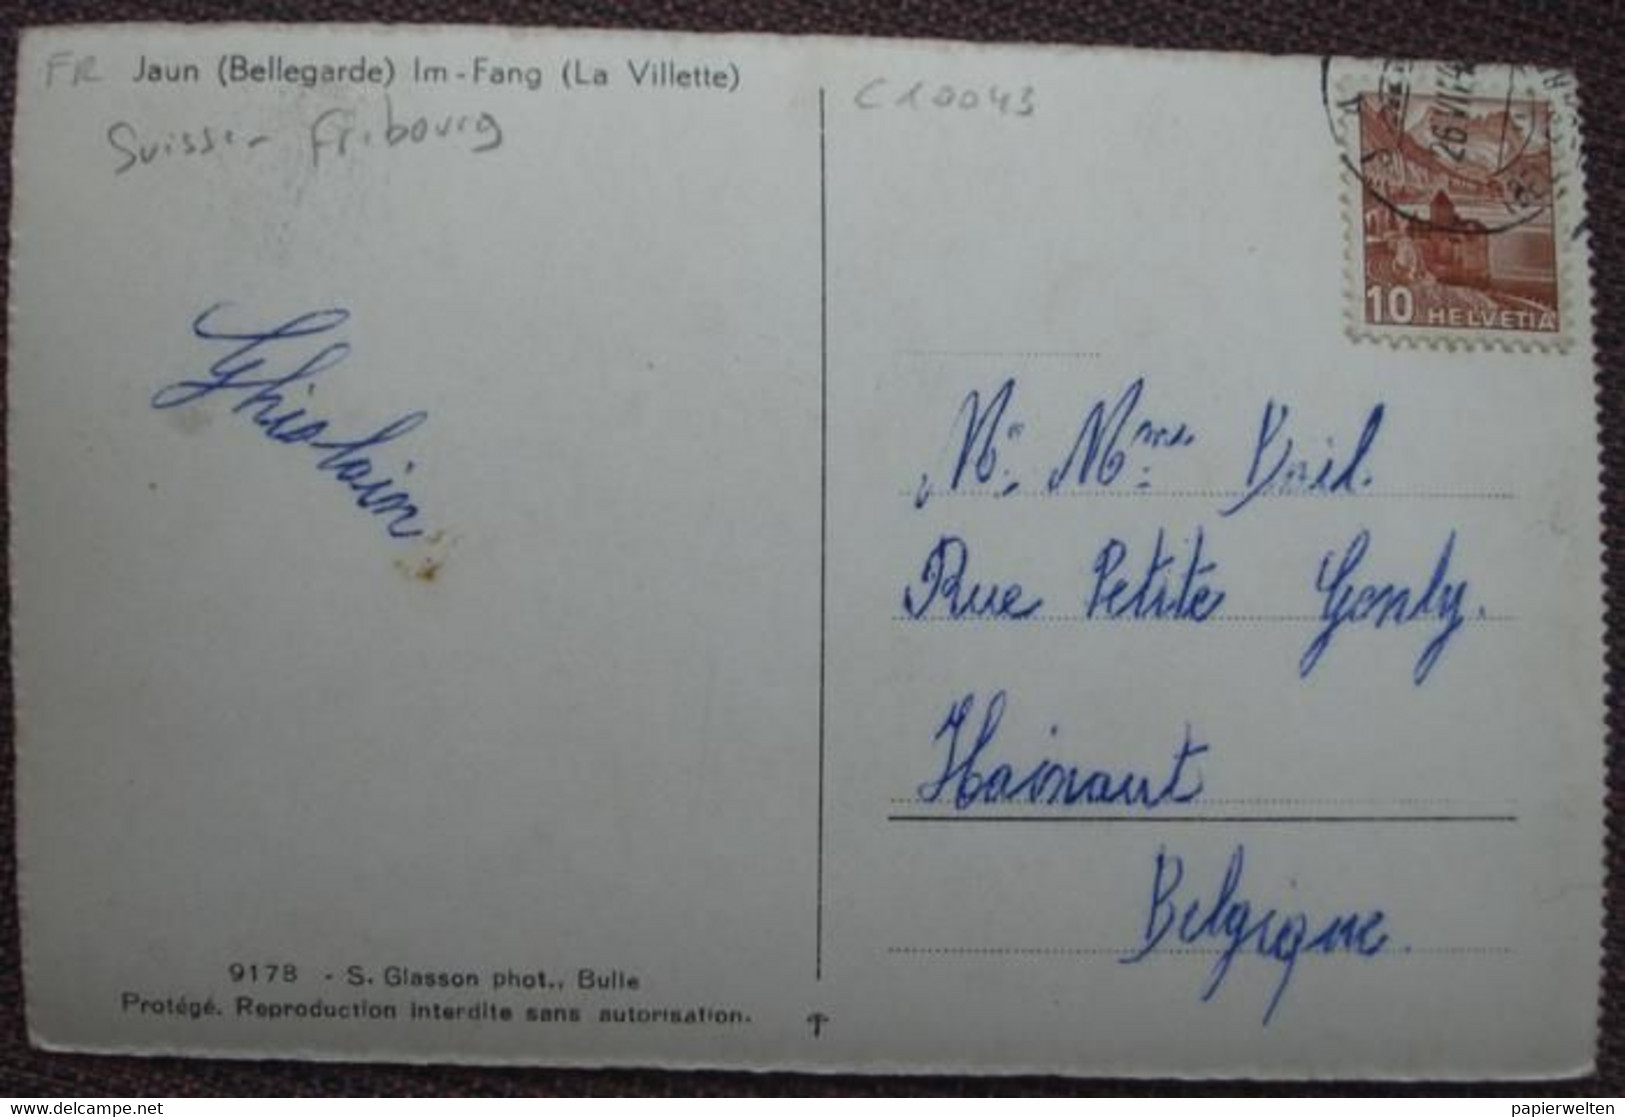 FR Jaun (Bellegarde) Im-Fang (La Villette)
Suisse - Fribourg
C10043
26 VI
10 HELVETIA
Ghislain
Mr. Mme
Rue Petite
Hainaut
Belgique.
9178 - S. Glasson phot., Bulle
Protégé. Reproduction interdite sans autorisation.
papierwelten
www.delcampe.net